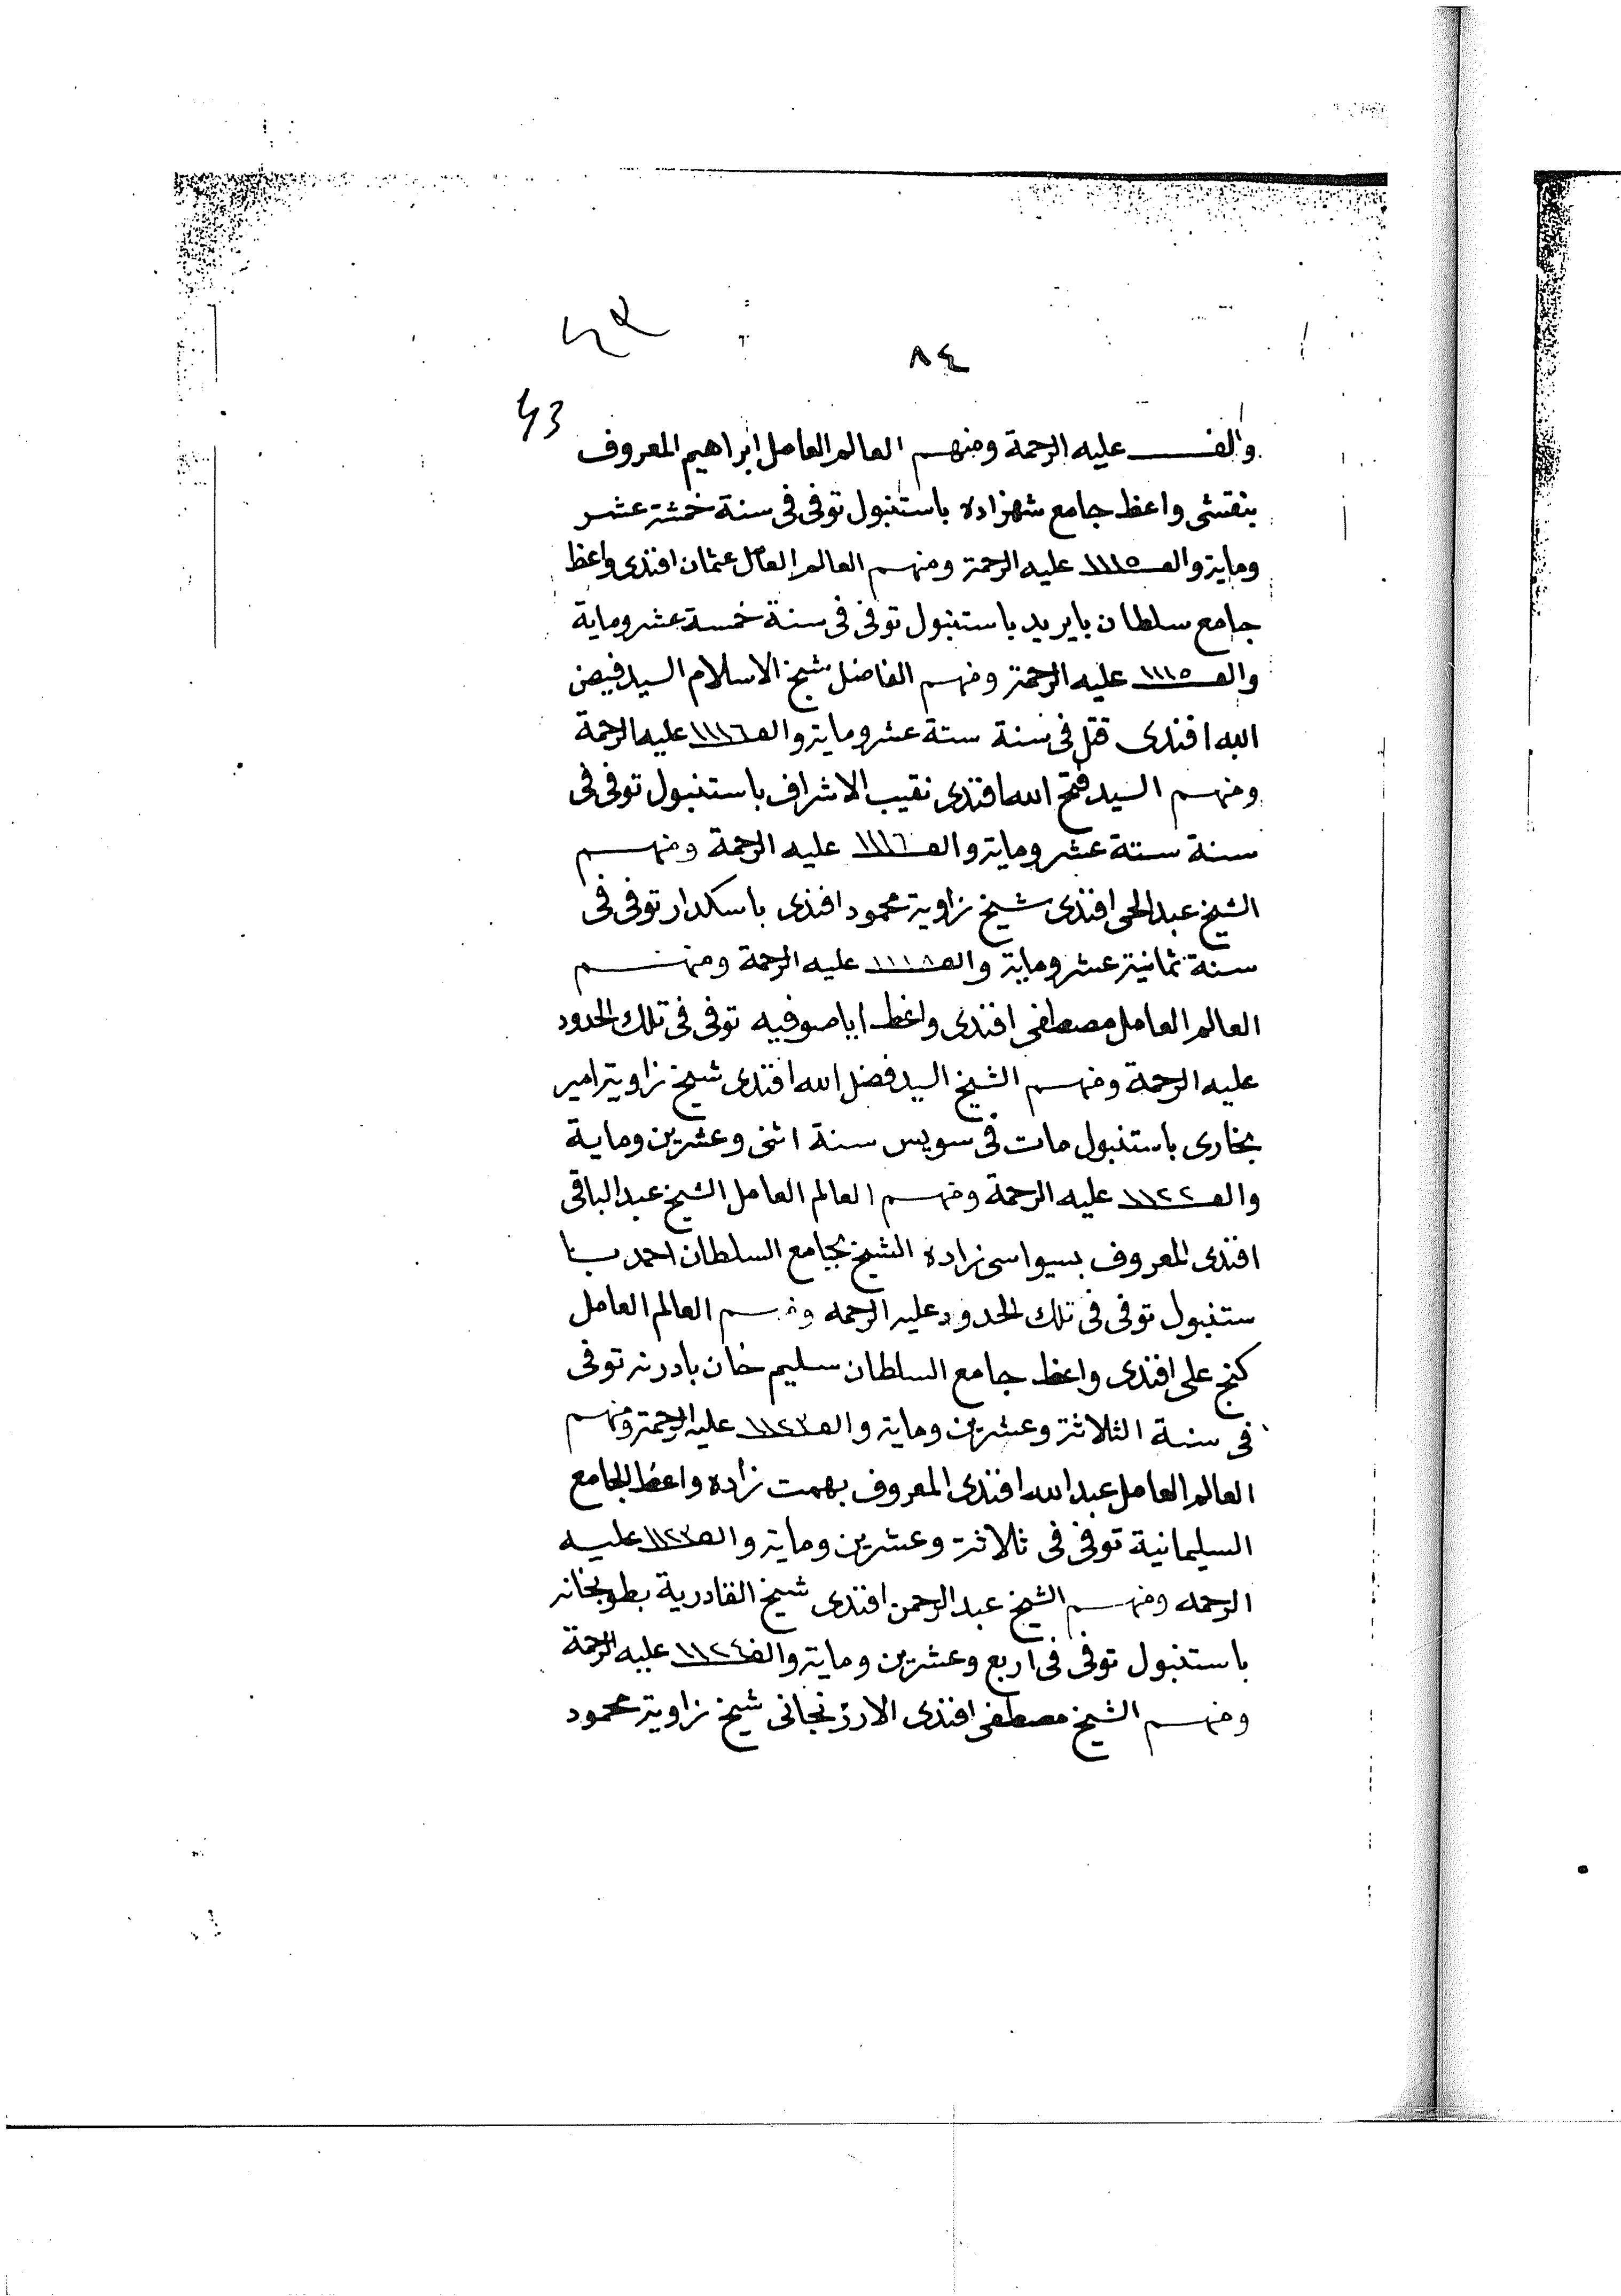 ٤٣
٨٤
43
والف عليه الرحمة ومنهم العالم العامل ابراهيم المعروف
بنقشى واعظ جامع شهزاده باستنبول توفى فى سنة خمسة عشر
وماية والف ١١١٥ عليه الرحمة ومنهم العالم العامل عثمان افندى واعظ
جامع سلطان بايريد باستنبول توفى فى سنة خمسة عشر وماية
والف ١١١٥ عليه الرحمة ومنهم الفاضل شيخ الاسلام السيد فيض
الله افندى قتل فى سنة ستة عشر وماية والف ١١١٦ عليه الرحمة
ومنهم السيد فتح الله افندى نقيب الاشراف باستنبول توفى فى
سنة ستة عشر وماية والف ١١١٦ عليه الرحمة ومنهم
الشيخ عبد الحى افندى شيخ زاوية محمود افندى باسكدار توفى فى
سنة ثمانية عشر وماية والف ١١١٨ عليه الرحمة ومنهم
العالم العامل مصطفى افندى واعظ اياصوفيه توفى فى تلك الحدود
عليه الرحمة ومنهم الشيخ السيد فضل الله افندى شيخ زاوية امير
بخارى باستنبول مات فى سويس سنة اثنى وعشرين وماية
والف ١١٢٢ عليه الرحمة ومنهم العالم العامل الشيخ عبد الباقى
افندى المعروف بسيواسى زاده الشيخ بجامع السلطان احمد با
ستنبول توفى فى تلك الحدود عليه الرحمه ومنهم العالم العامل
كنج على افندى واعظ جامع السلطان سليم خان بادرنه توفى
فى سنة الثلاثة وعشرين وماية والف ١١٢٣ عليه الرحمة ومنهم
العالم العامل عبد الله افندى المعروف بهمت زاده واعظ الجامع
السليمانية توفى فى ثلاثة وعشرين وماية والف ١١٢٣ عليه
الرحمه ومنهم الشيخ عبد الرحمن افندى شيخ القادرية بطوبخانه
باستنبول توفى فى اربع وعشرين وماية والف ١١٢٤ عليه الرحمة
ومنهم الشيخ مصطفى افندى الارزنجانى شيخ زاوية محمود